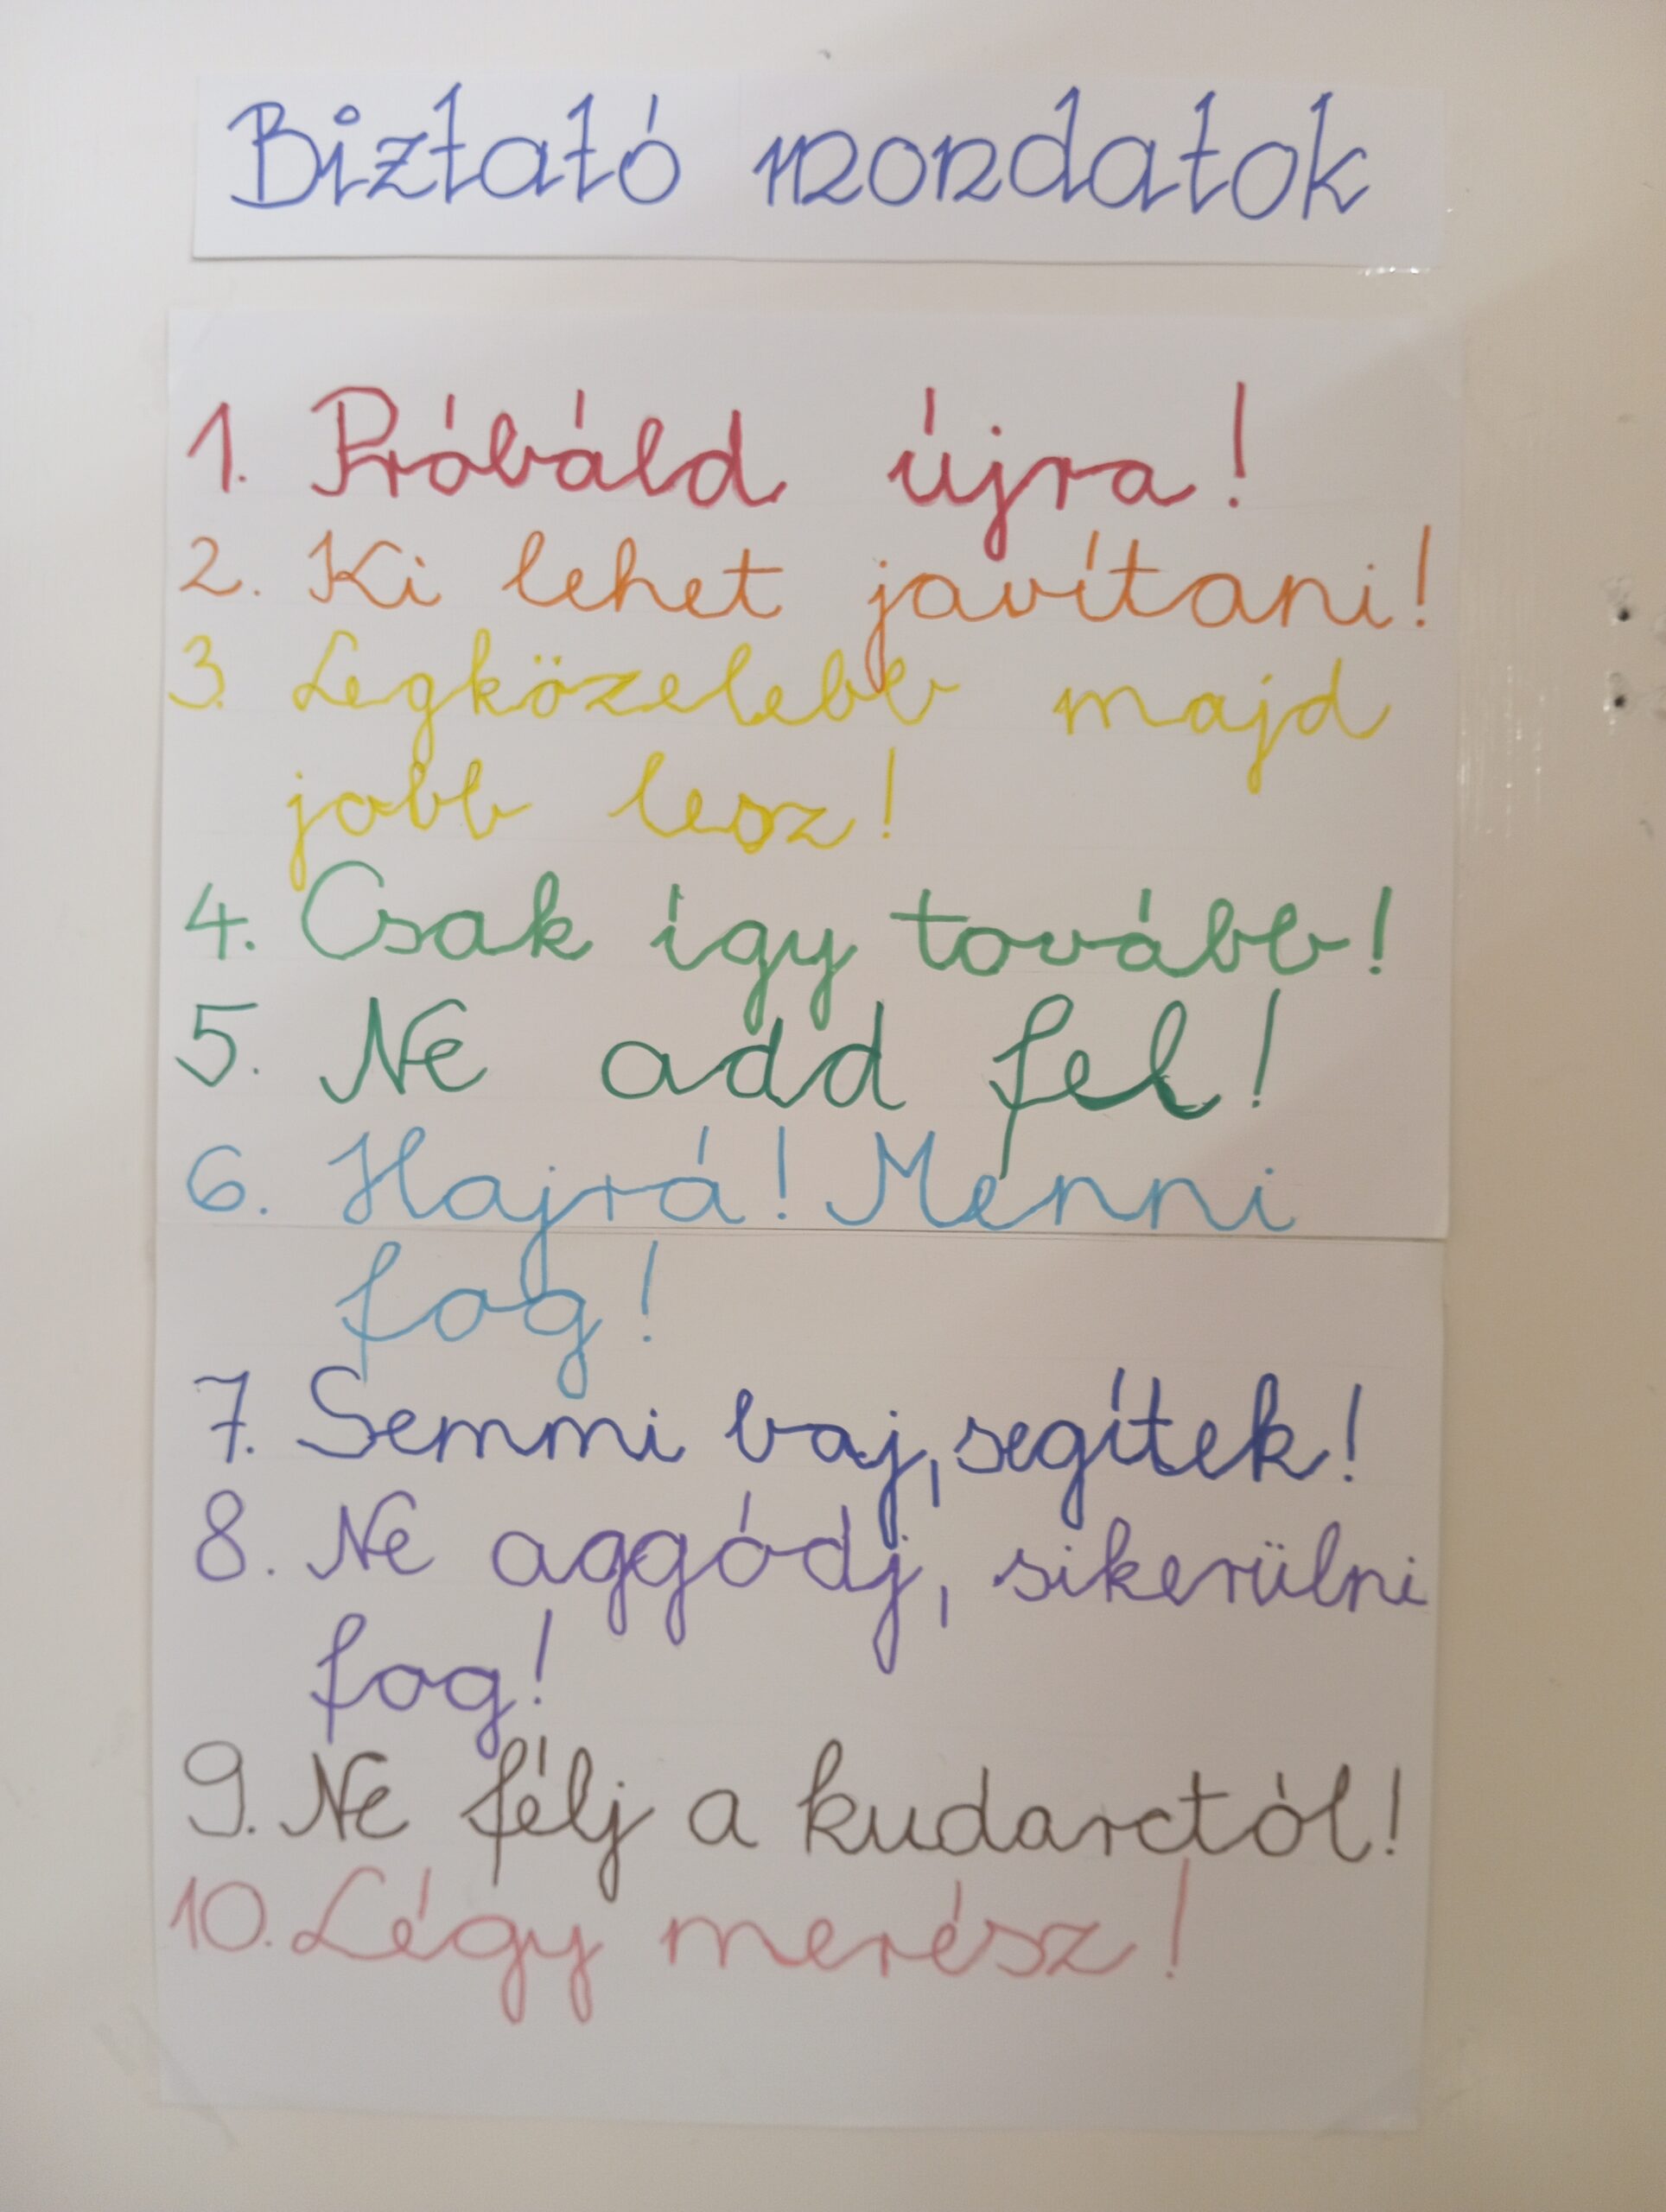 Biztató mondatok
1. Próbáld újra!
2. Ki lehet javítani!
3. Legközelebb majd
jobb lesz!
4. Csak így tovább!
5. Ne add fel!
6. Hajrá! Menni
fog!
7. Semmi baj, segítek!
8. Ne aggódj, sikerülni
fog!
9. Ne félj a kudarctól!
10. Légy merész!